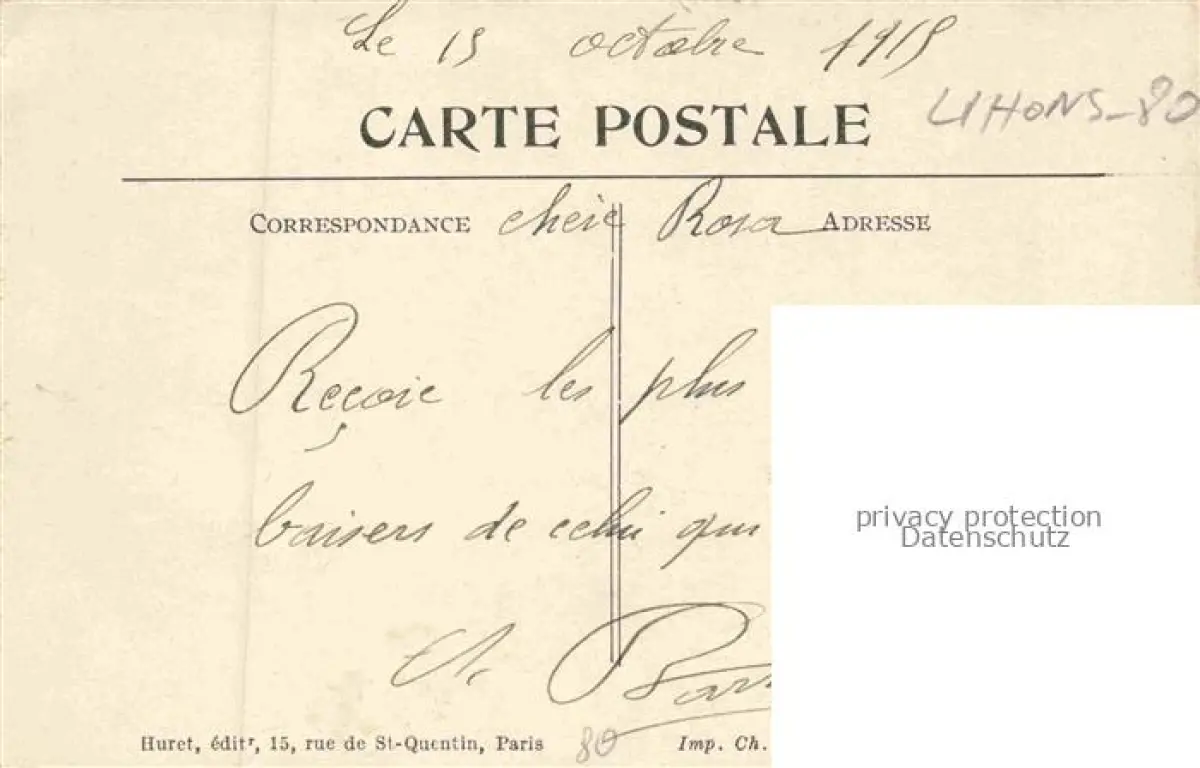 Le 15 octobre 1915
CARTE POSTALE
LIHONS-80
CORRESPONDANCE chère Rosa ADRESSE
Reçoie les plus
baisers de celui qui
privacy protection
Datenschutz
Huret, éditr, 15, rue de St-Quentin, Paris 80 Imp. Ch.